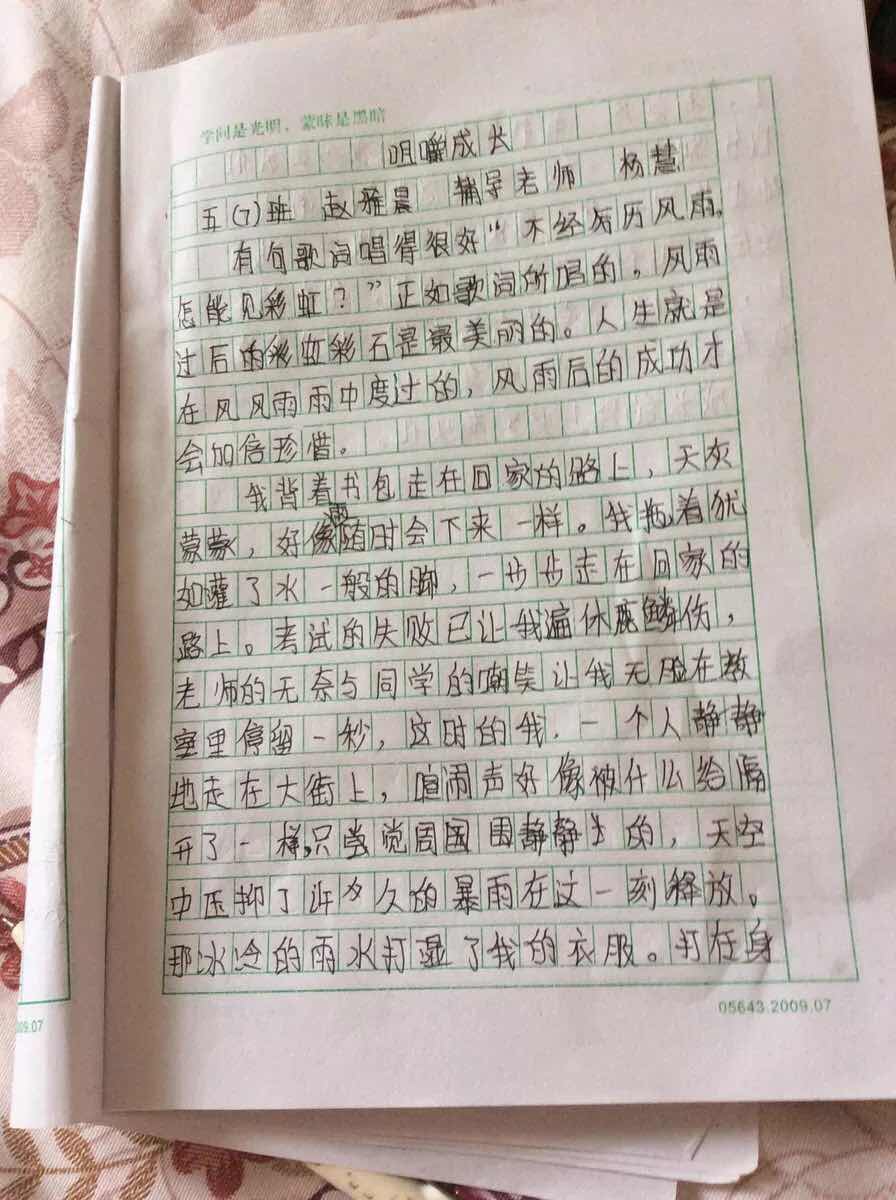 学问是光明，蒙昧是黑暗
咀嚼成长
五(7)班 赵雅晨 辅导老师 杨慧
有句歌词唱得很好“不经历风雨，
怎能见彩虹？”正如歌词所唱的，风雨
过后的彩虹彩石是最美丽的。人生就是
在风风雨雨中度过的，风雨后的成功才
会加倍珍惜。
我背着书包走在回家的路上，天灰
蒙蒙，好像雨随时会下来一样。我拖着犹
如灌了水一般的脚，一步步走在回家的
路上。考试的失败已让我遍体鹿鳞伤，
老师的无奈与同学的嘲笑让我无脸在教
室里停留一秒，这时的我，一个人静静
地走在大街上，喧闹声好像被什么给隔
开了一样，只觉周围静静的，天空
中压抑了许多久的暴雨在这一刻释放。
那冰冷的雨水打湿了我的衣服。打在身
05643.2009.07
009.07